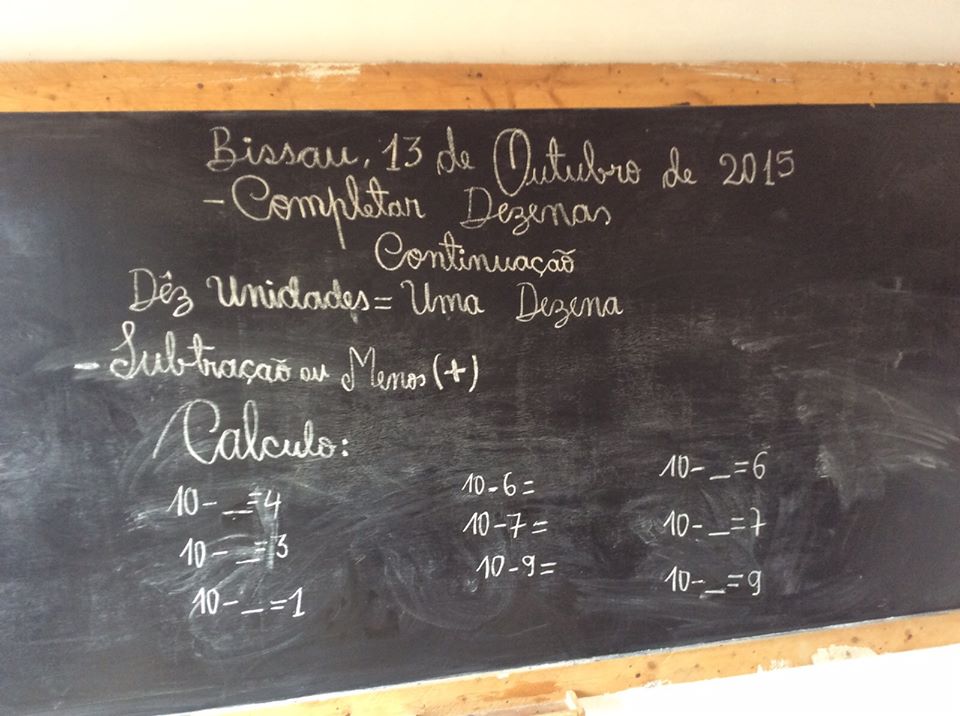 Bissau, 13 de Outubro de 2015
- Completar Dezenas
Continuação
Dêz Unidades = Uma Dezena
- Subtração ou Menos (+)
Calculo:
10 - __ = 4
10 - __ = 3
10 - __ = 1
10 - 6 =
10 - 7 =
10 - 9 =
10 - __ = 6
10 - __ = 7
10 - __ = 9